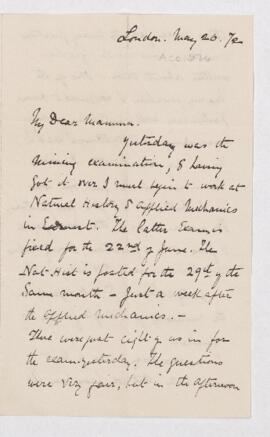 London. May 26. /72
My Dear Mamma.
Yesterday was the
Mining examination, & having
got it over I must begin to work at
Natural History & Applied Mechanics
in Earnest. The latter Exam is
fixed for the 22nd of June. The
Nat. Hist is posted for the 29th of the
Same month – Just a week after
the Applied Mechanics. –
There were just eight of us in for
the exam yesterday. The questions
were very fair, but in the afternoon